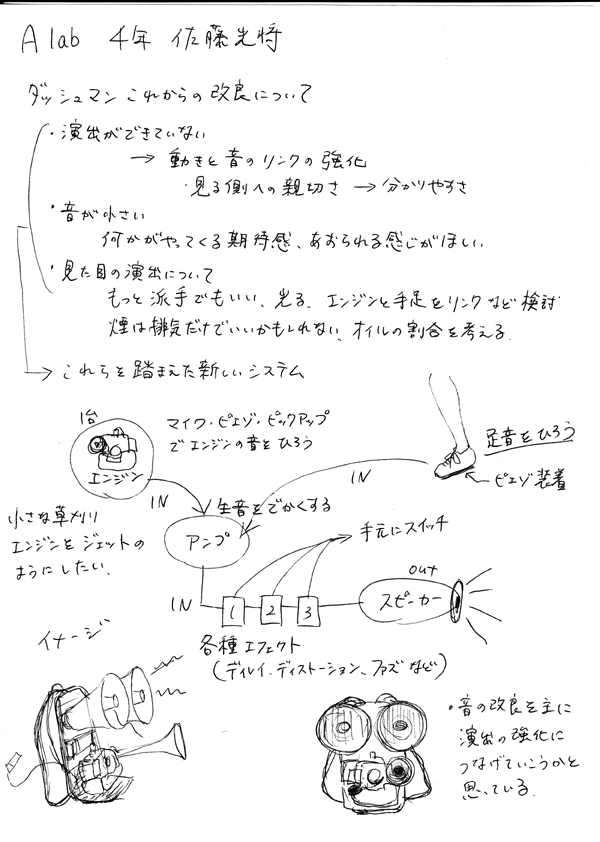 A lab 4年 佐藤光将
ダッシュマン これからの改良について
・演出ができていない
→ 動きと音のリンクの強化
・見る側への親切さ → 分かりやすさ
・音が小さい
何かがやってくる期待感、あおられる感じがほしい
・見た目の演出について
もっと派手でもいい、光る、エンジンと手足をリンクなど検討
煙は排気だけでいいかもしれない、オイルの割合を考える。
→ これらを踏まえた新しいシステム
1台
エンジン
マイク・ピエゾ・ピックアップ
でエンジンの音をひろう
足音をひろう
ピエゾ装着
IN
IN
小さな草刈り
エンジンをジェットの
ようにしたい。
生音をでかくする
アンプ
手元にスイッチ
IN
1 2 3
out
スピーカー
各種エフェクト
(ディレイ、ディストーション、ファズなど)
イメージ
・音の改良を主に
演出の強化に
つなげていこうかと
思っている。